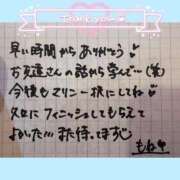 Thank you
早い時間からありがとう
お友達さんの話から学んで…(笑)
今後もマリン一択にしてね♡
久々にフィニッシュしてもらえて
よかった!!!また待ってます♡
もね